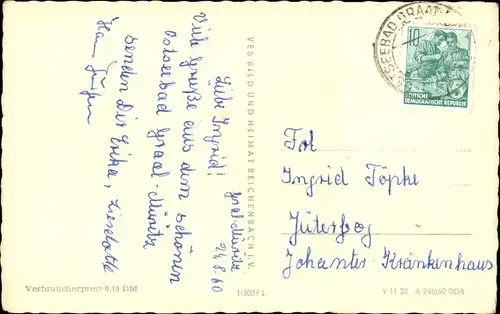 Graal-Müritz
24.8.60
Liebe Ingrid!
Viele Grüße aus dem schönen
Ostseebad Graal-Müritz
senden Dir Erika, Lieselotte
Hans Jürgen
VEB BILD UND HEIMAT REICHENBACH I. V.
Verbraucherpreis 0,15 DM
SEEBAD GRAAL
10
DEUTSCHE
DEMOKRATISCHE REPUBLIK
Frl.
Ingrid Töpke
Jüterbog
Johanter-Krankenhaus
V 11 28 A 246/60 DDR